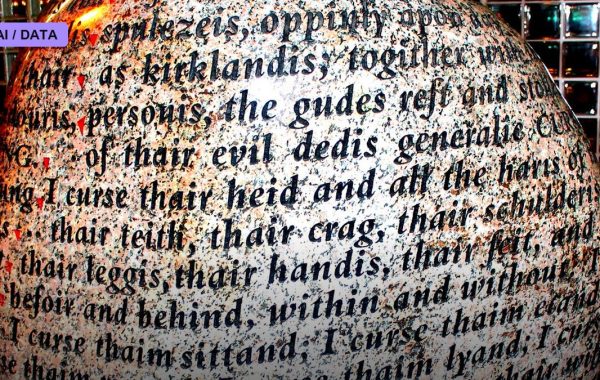 AI / DATA
spulzeis, oppinly upon da
thair as kirklandis; togither with
ouris, personis, the gudes reft and stol
NG, of thair evil dedis generalie CU
ung, I curse thair heid and all the haris of
s... thair teith, thair crag, thair schulderi
thair leggis, thair handis, thair feit, and
befoir and behind, within and without. I
I curse thaim sittand; I curse thaim etand
se thaim thaim lyand; I cu